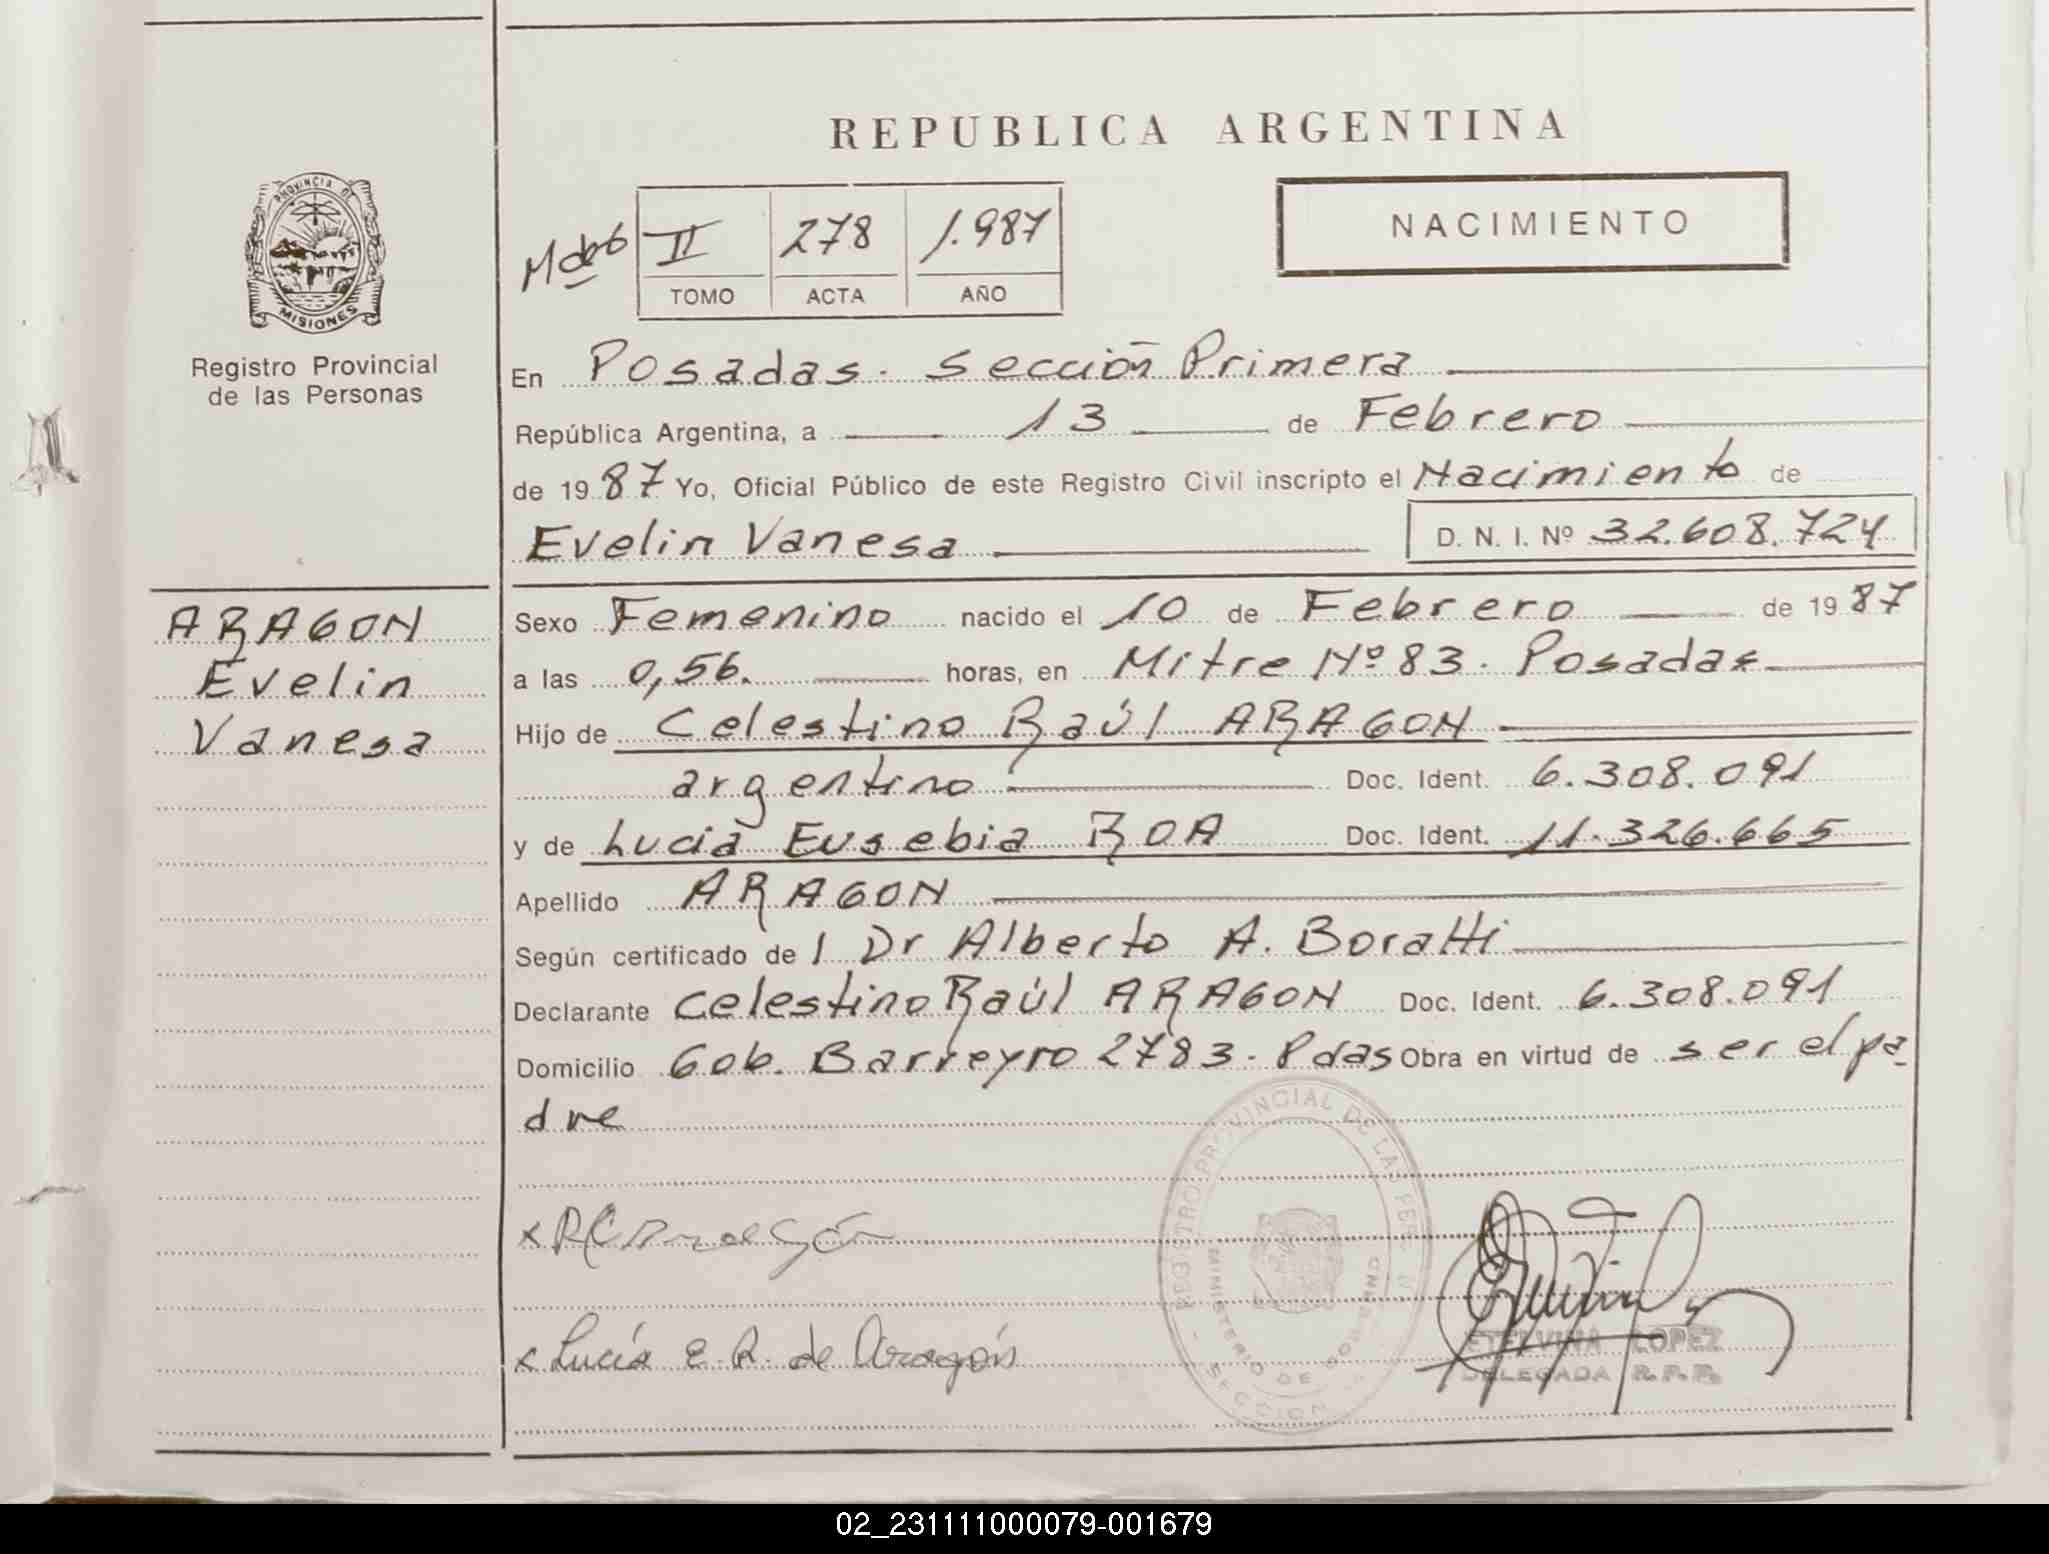 REPUBLICA ARGENTINA
PROVINCIA DE
MISIONES
Registro Provincial
de las Personas
II 278 1.987
TOMO ACTA AÑO
NACIMIENTO
En Posadas. Sección Primera
República Argentina, a 13 de Febrero
de 1987 Yo, Oficial Público de este Registro Civil inscripto el Nacimiento de
Evelin Vanesa D. N. I. Nº 32.608.724
ARAGON
Evelin
Vanesa
Sexo Femenino nacido el 10 de Febrero de 1987
a las 0,56. horas, en Mitre Nº 83. Posadas
Hijo de Celestino Raúl ARAGON
argentino Doc. Ident. 6.308.091
y de Lucia Eusebia ROA Doc. Ident. 11.326.665
Apellido ARAGON
Según certificado de l Dr Alberto A. Boratti
Declarante Celestino Raúl ARAGON Doc. Ident. 6.308.091
Domicilio Gob. Barreyro 2783. Pdas Obra en virtud de ser el pa-
dre
REGISTRO PROVINCIAL DE LAS PERS
MINISTERIO DE GOBIERNO
SECCION
x Lucía E. R. de Aragón
ETELVINA LOPEZ
DELEGADA R.P.P.
02_231111000079-001679